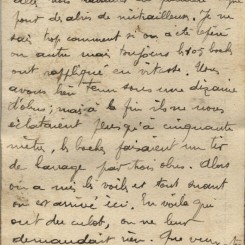 pour des abris de mitrailleur. Je ne
sais trop comment si on a été repéré
ou autre mais toujours les 105 boches
ont rappliqué en vitesse. Nous
avons bien tenu sous une dizaine
d'obus; mais à la fin ils ne nous
éclataient plus qu'à cinquante
mètres, les boches faisaient un tir
de barrage par trois obus. Alors
on a mis les voiles et tout suant
on est arrivé ici. En voilà qui
ont du culot, on ne leur
demandait rien. Que veux